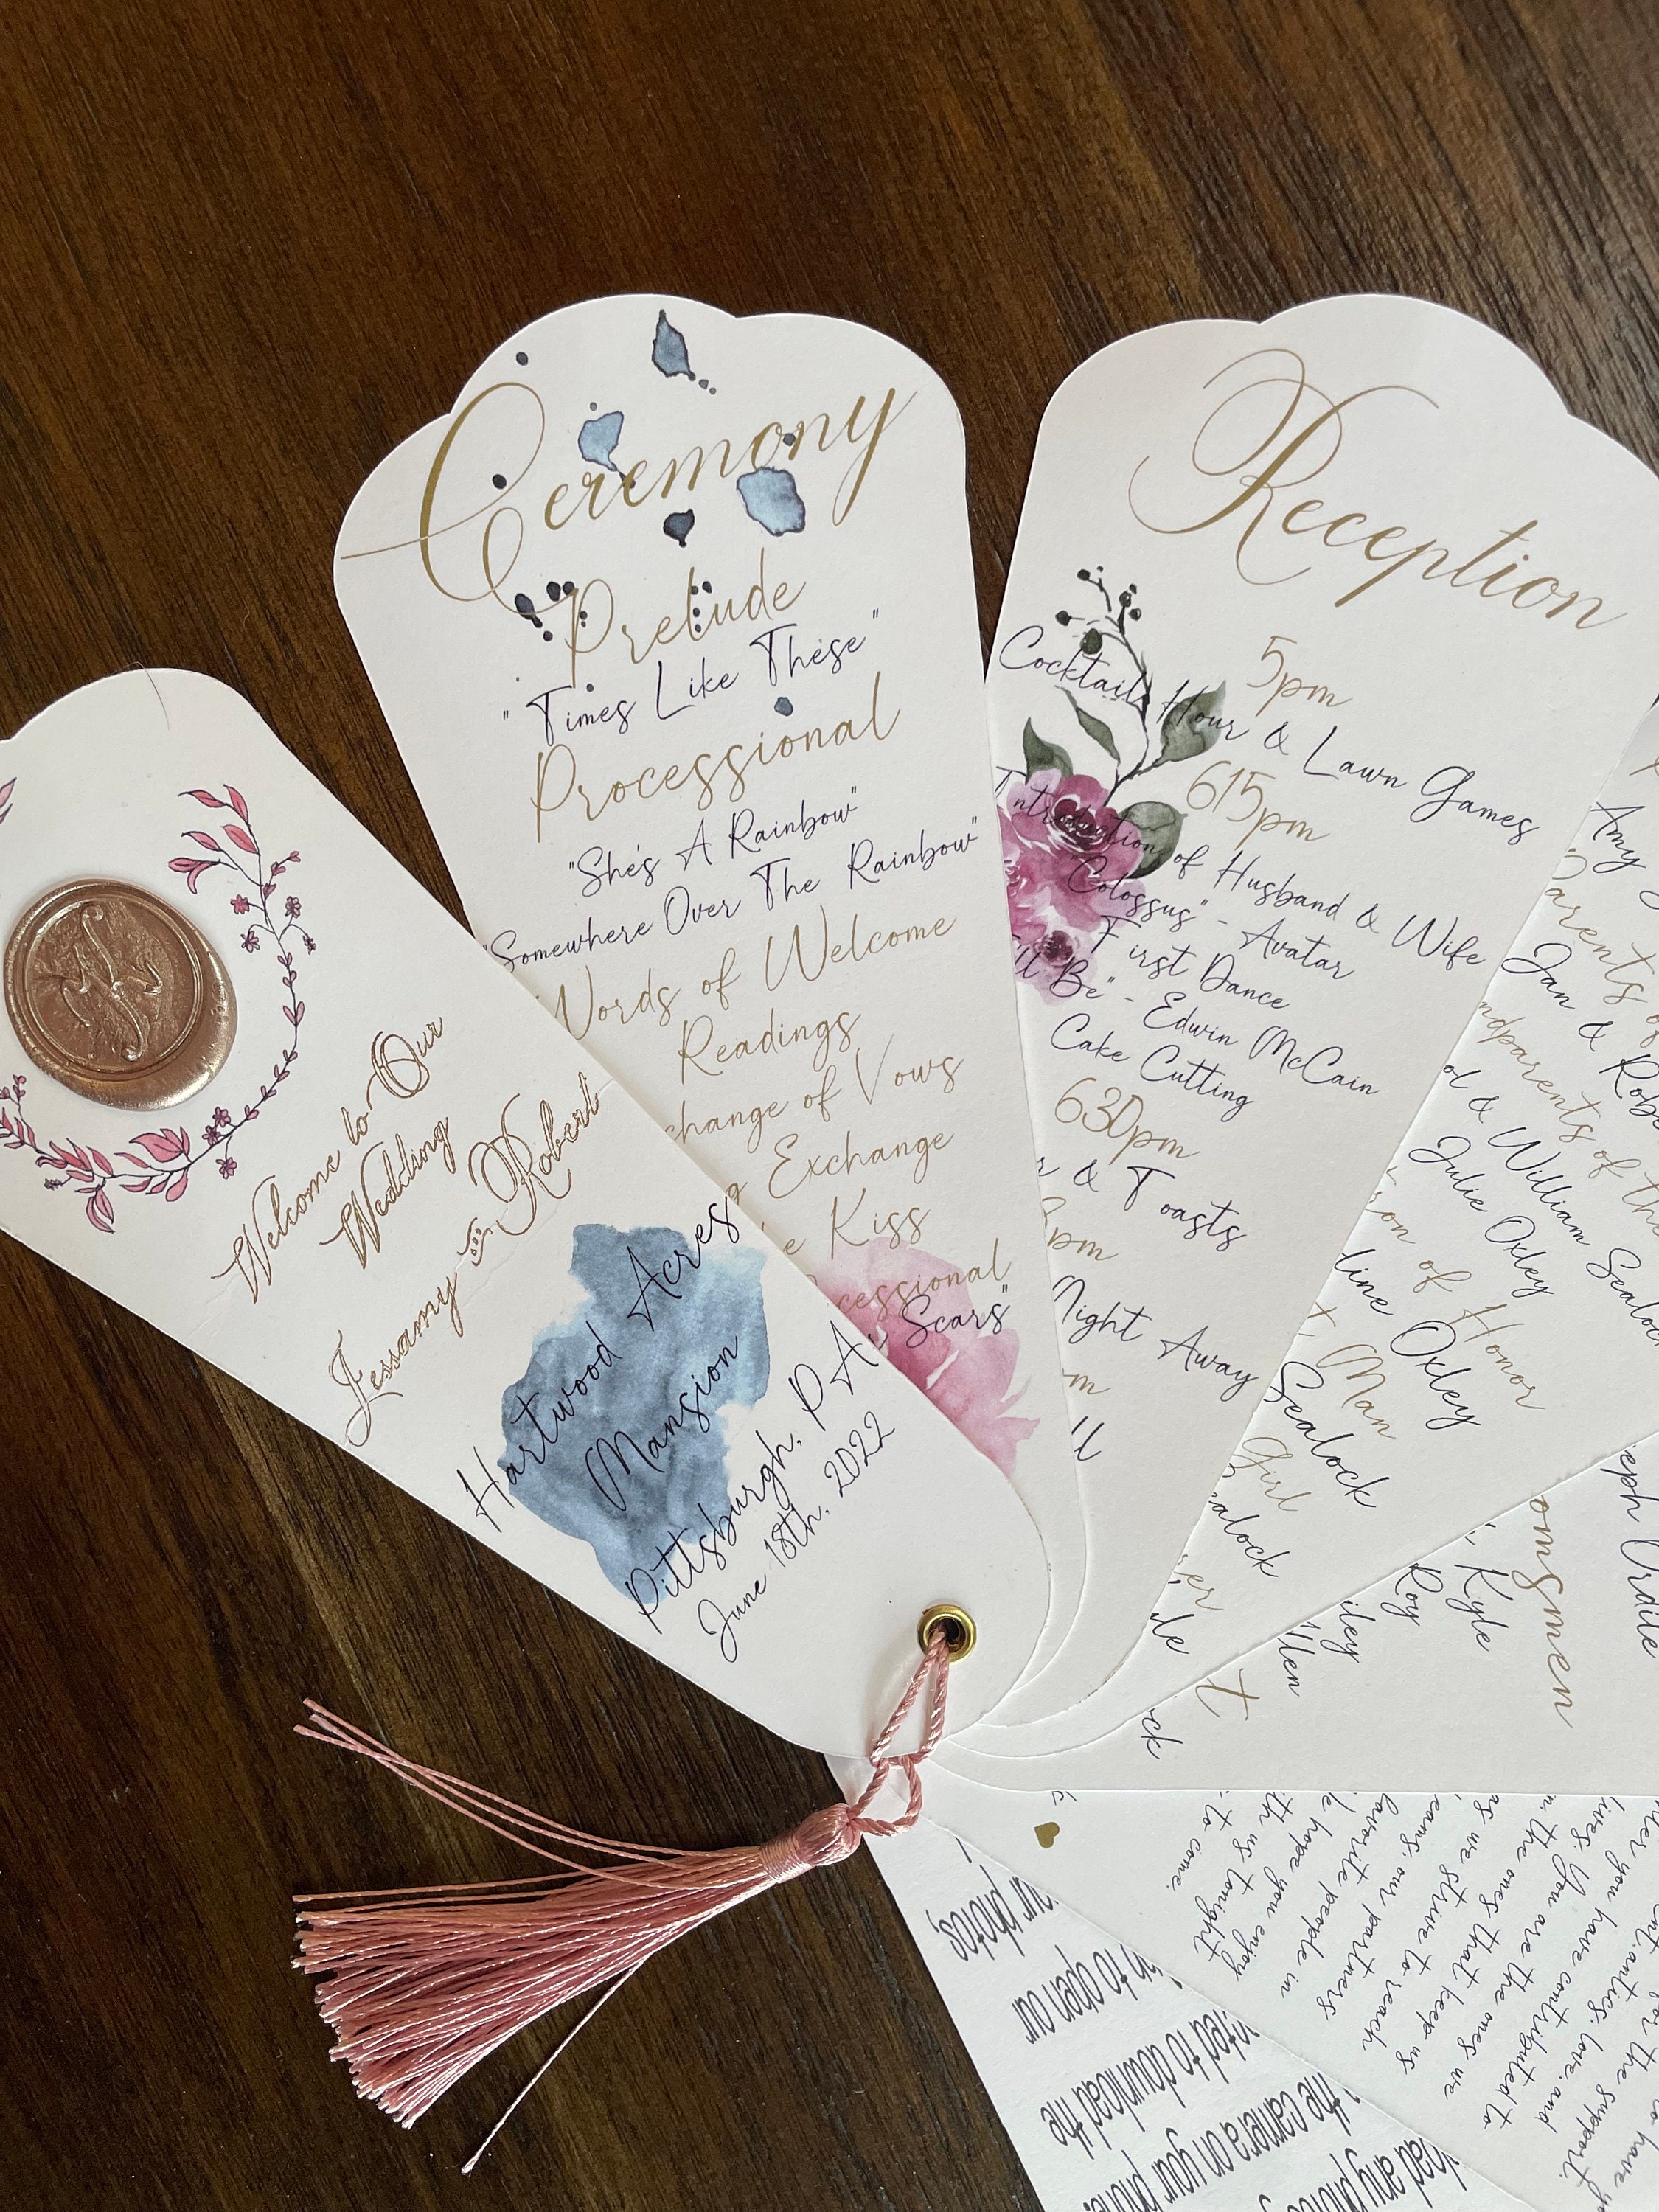 Welcome to Our
Wedding
Jessamy & Robert
Hartwood Acres
Mansion
Pittsburgh, PA
June 18th, 2022
Ceremony
Prelude
"Times Like These"
Processional
"She's A Rainbow"
"Somewhere Over The Rainbow"
Words of Welcome
Readings
change of Vows
Exchange
Kiss
cessional
Scars"
Reception
5pm
Cocktail Hour & Lawn Games
615pm
Introduction of Husband & Wife
"Colossus" - Avatar
First Dance
Be" - Edwin McCain
Cake Cutting
630pm
& Toasts
pm
Night Away
Amy
arents of
Jan & Robe
ndparents of the
& William Sealoc
Julie Oxley
of Honor
line Oxley
Man
Sealock
Girl
ealock
eph Urdile
omsmen
Kyle
Roy
iley
llen
ler you have
for the support,
antics, love, and
lives. You are the ones we
in the ones that keep us
as we strive to reach
eams, our partners
favorite people in
hope you enjoy
ith us tonight
to come.
our photos,
in to open our
ted to download the
the camera on your phone,
load any photos